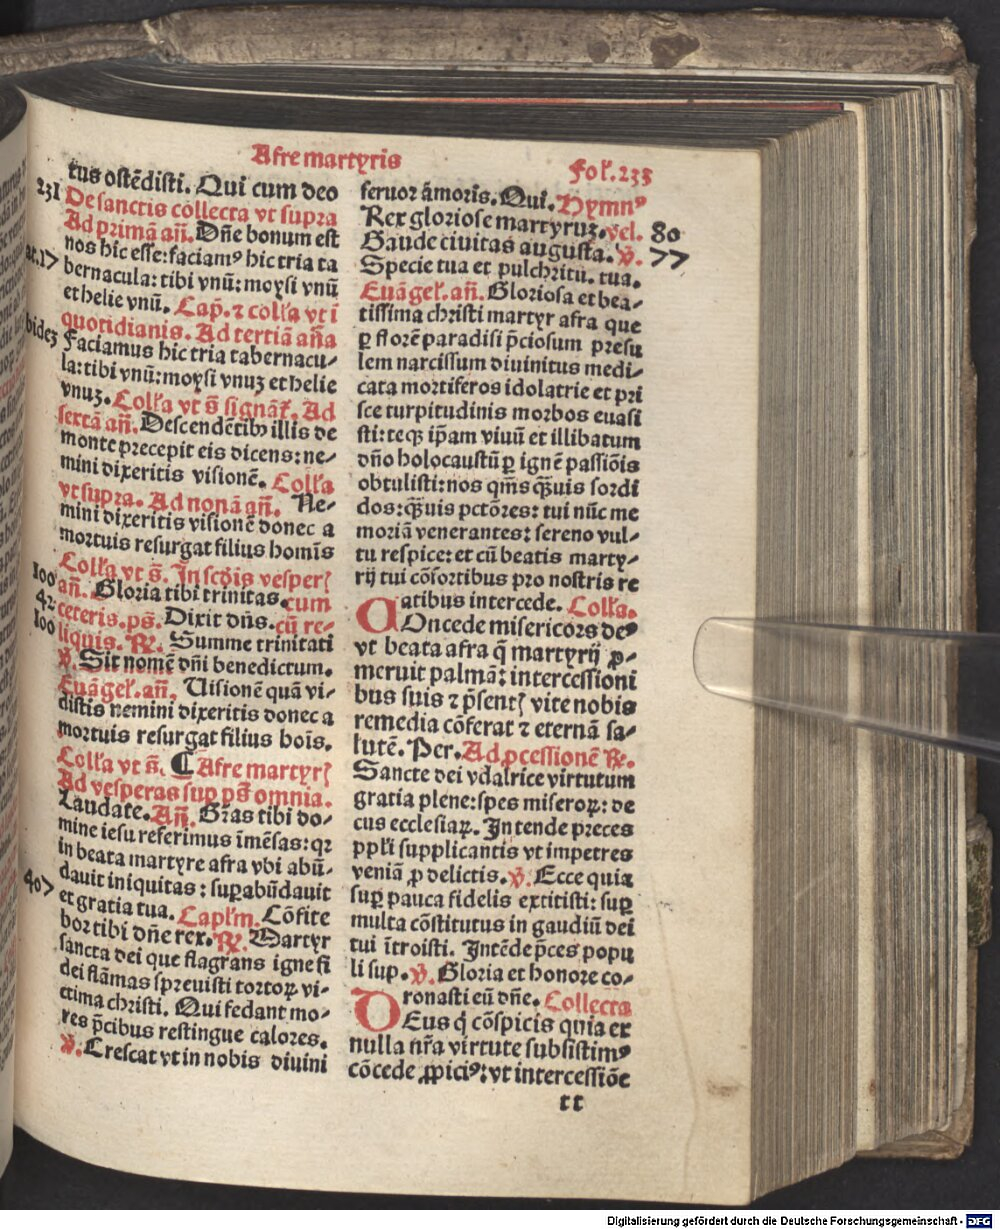 Afre martyris
Fol̕. 235
tus ostẽdisti. Qui cum deo
231 De sanctis collecta vt supra
Ad primã añ. Dñe bonum est
nos hic esse: faciamꝰ hic tria ta
bernacula: tibi vnũ: moysi vnũ
et helie vnũ. Cap̕. ⁊ coll̕a vt i
quotidianis. Ad tertiã aña
bidez Faciamus hic tria tabernacu⸗
la: tibi vnũ: moysi vnuꝫ et helie
vnuꝫ. Coll̕a vt s̃ signãt̕. Ad
sextã añ. Descendẽtibꝰ illis de
monte precepit eis dicens: ne⸗
mini dixeritis visionẽ. Coll̕a
vt supra. Ad nonã añ. Ne⸗
mini dixeritis visionẽ donec a
mortuis resurgat filius homĩs
Coll̕a vt s̃. In scd̕is vesperꝭ
100 añ. Gloria tibi trinitas. cum
42 ceteris. ps̃. Dixit dñs. cũ re⸗
100 liquis. ꝶ. Summe trinitati
℣. Sit nomẽ dñi benedictum.
Euãgel̕. añ. Uisionẽ quã vi⸗
distis nemini dixeritis donec a
mortuis resurgat filius hoĩs.
Coll̕a vt s̃. ¶ Afre martyrꝭ
Ad vesperas sup ps̃ omnia.
Laudate. Añ. Gr̃as tibi do⸗
mine iesu referimus ĩmẽsas: qꝛ
in beata martyre afra vbi abũ⸗
dauit iniquitas: suꝑabũdauit
407 et gratia tua. Capl̕m. Cõfite
bor tibi dñe rex. ꝶ. Martyr
sancta dei que flagrans igne fi
dei flãmas spreuisti tortoꝝ vi⸗
ctima christi. Qui fedant mo⸗
res p̃cibus restingue calores.
℣. Crescat vt in nobis diuini
feruor ãmoris. Qui. Hymnꝰ
Rex gloriose martyruꝫ. vel. 80
Gaude ciuitas augusta. ℣. 77
Specie tua et pulchritu. tua.
Euãgel̕. añ. Gloriosa et bea⸗
tissima christi martyr afra que
ꝑ florẽ paradisi p̃ciosum presu
lem narcissum diuinitus medi⸗
cata mortiferos idolatrie et pri
sce turpitudinis morbos euasi
sti: teqꝫ ip̃am viuũ et illibatum
dño holocaustũ ꝑ ignẽ passiõis
obtulisti: nos qm̃s qꝫuis sordi
dos: qꝫuis pctõres: tui nũc me
moriã venerantes: sereno vul⸗
tu respice: et cũ beatis marty⸗
rij tui cõsortibus pro nostris re
atibus intercede. Coll̕a.
COncede misericors deꝰ
vt beata afra q̃ martyrij ꝓ⸗
meruit palmã: intercessioni
bus suis ⁊ p̃sentꝭ vite nobis
remedia cõferat ⁊ eternã sa⸗
lutẽ. Per. Ad ꝓcessionẽ ꝶ.
Sancte dei vdalrice virtutum
gratia plene: spes miseroꝝ: de
cus ecclesiaꝝ. Intende preces
ppl̕i supplicantis vt impetres
veniã ꝓ delictis. ℣. Ecce quia
suꝑ pauca fidelis extitisti: suꝑ
multa cõstitutus in gaudiũ dei
tui ĩtroisti. Intẽde p̃ces popu
li sup. ℣. Gloria et honore co⸗
ronasti eũ dñe. Collecta
DEus q̃ cõspicis quia ex
nulla nr̃a virtute subsistimꝰ
cõcede ꝓpiciꝰ: vt intercessiõe
tt
Digitalisierung gefördert durch die Deutsche Forschungsgemeinschaft - DFG